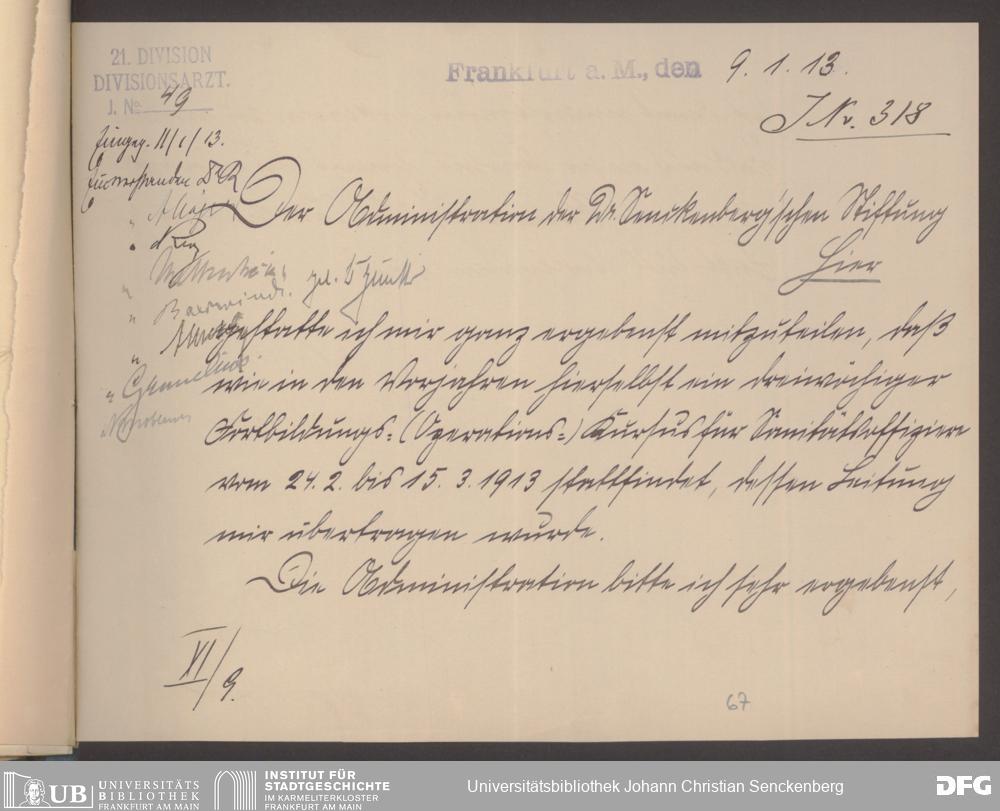 21. DIVISION
DIVISIONSARZT.
J. № 49
Frankfurt a. M., den 9. 1. 13.
J. Nr. 318
Eingeg. 11/1/13.
Einverstanden
Der Administration der Dr. Senckenberg'schen Stiftung
Hier
gestatte ich mir ganz ergebenst mitzuteilen, daß
wie in den Vorjahren hierselbst ein dreiwöchiger
Fortbildungs-(Operations-) Kursus für Sanitätsoffiziere
vom 24. 2. bis 15. 3. 1913 stattfindet, dessen Leitung
mir übertragen wurde.
Die Administration bitte ich sehr ergebenst,
XI/9.
67
UB UNIVERSITÄTS
BIBLIOTHEK
FRANKFURT AM MAIN
INSTITUT FÜR
STADTGESCHICHTE
IM KARMELITERKLOSTER
FRANKFURT AM MAIN
Universitätsbibliothek Johann Christian Senckenberg
DFG